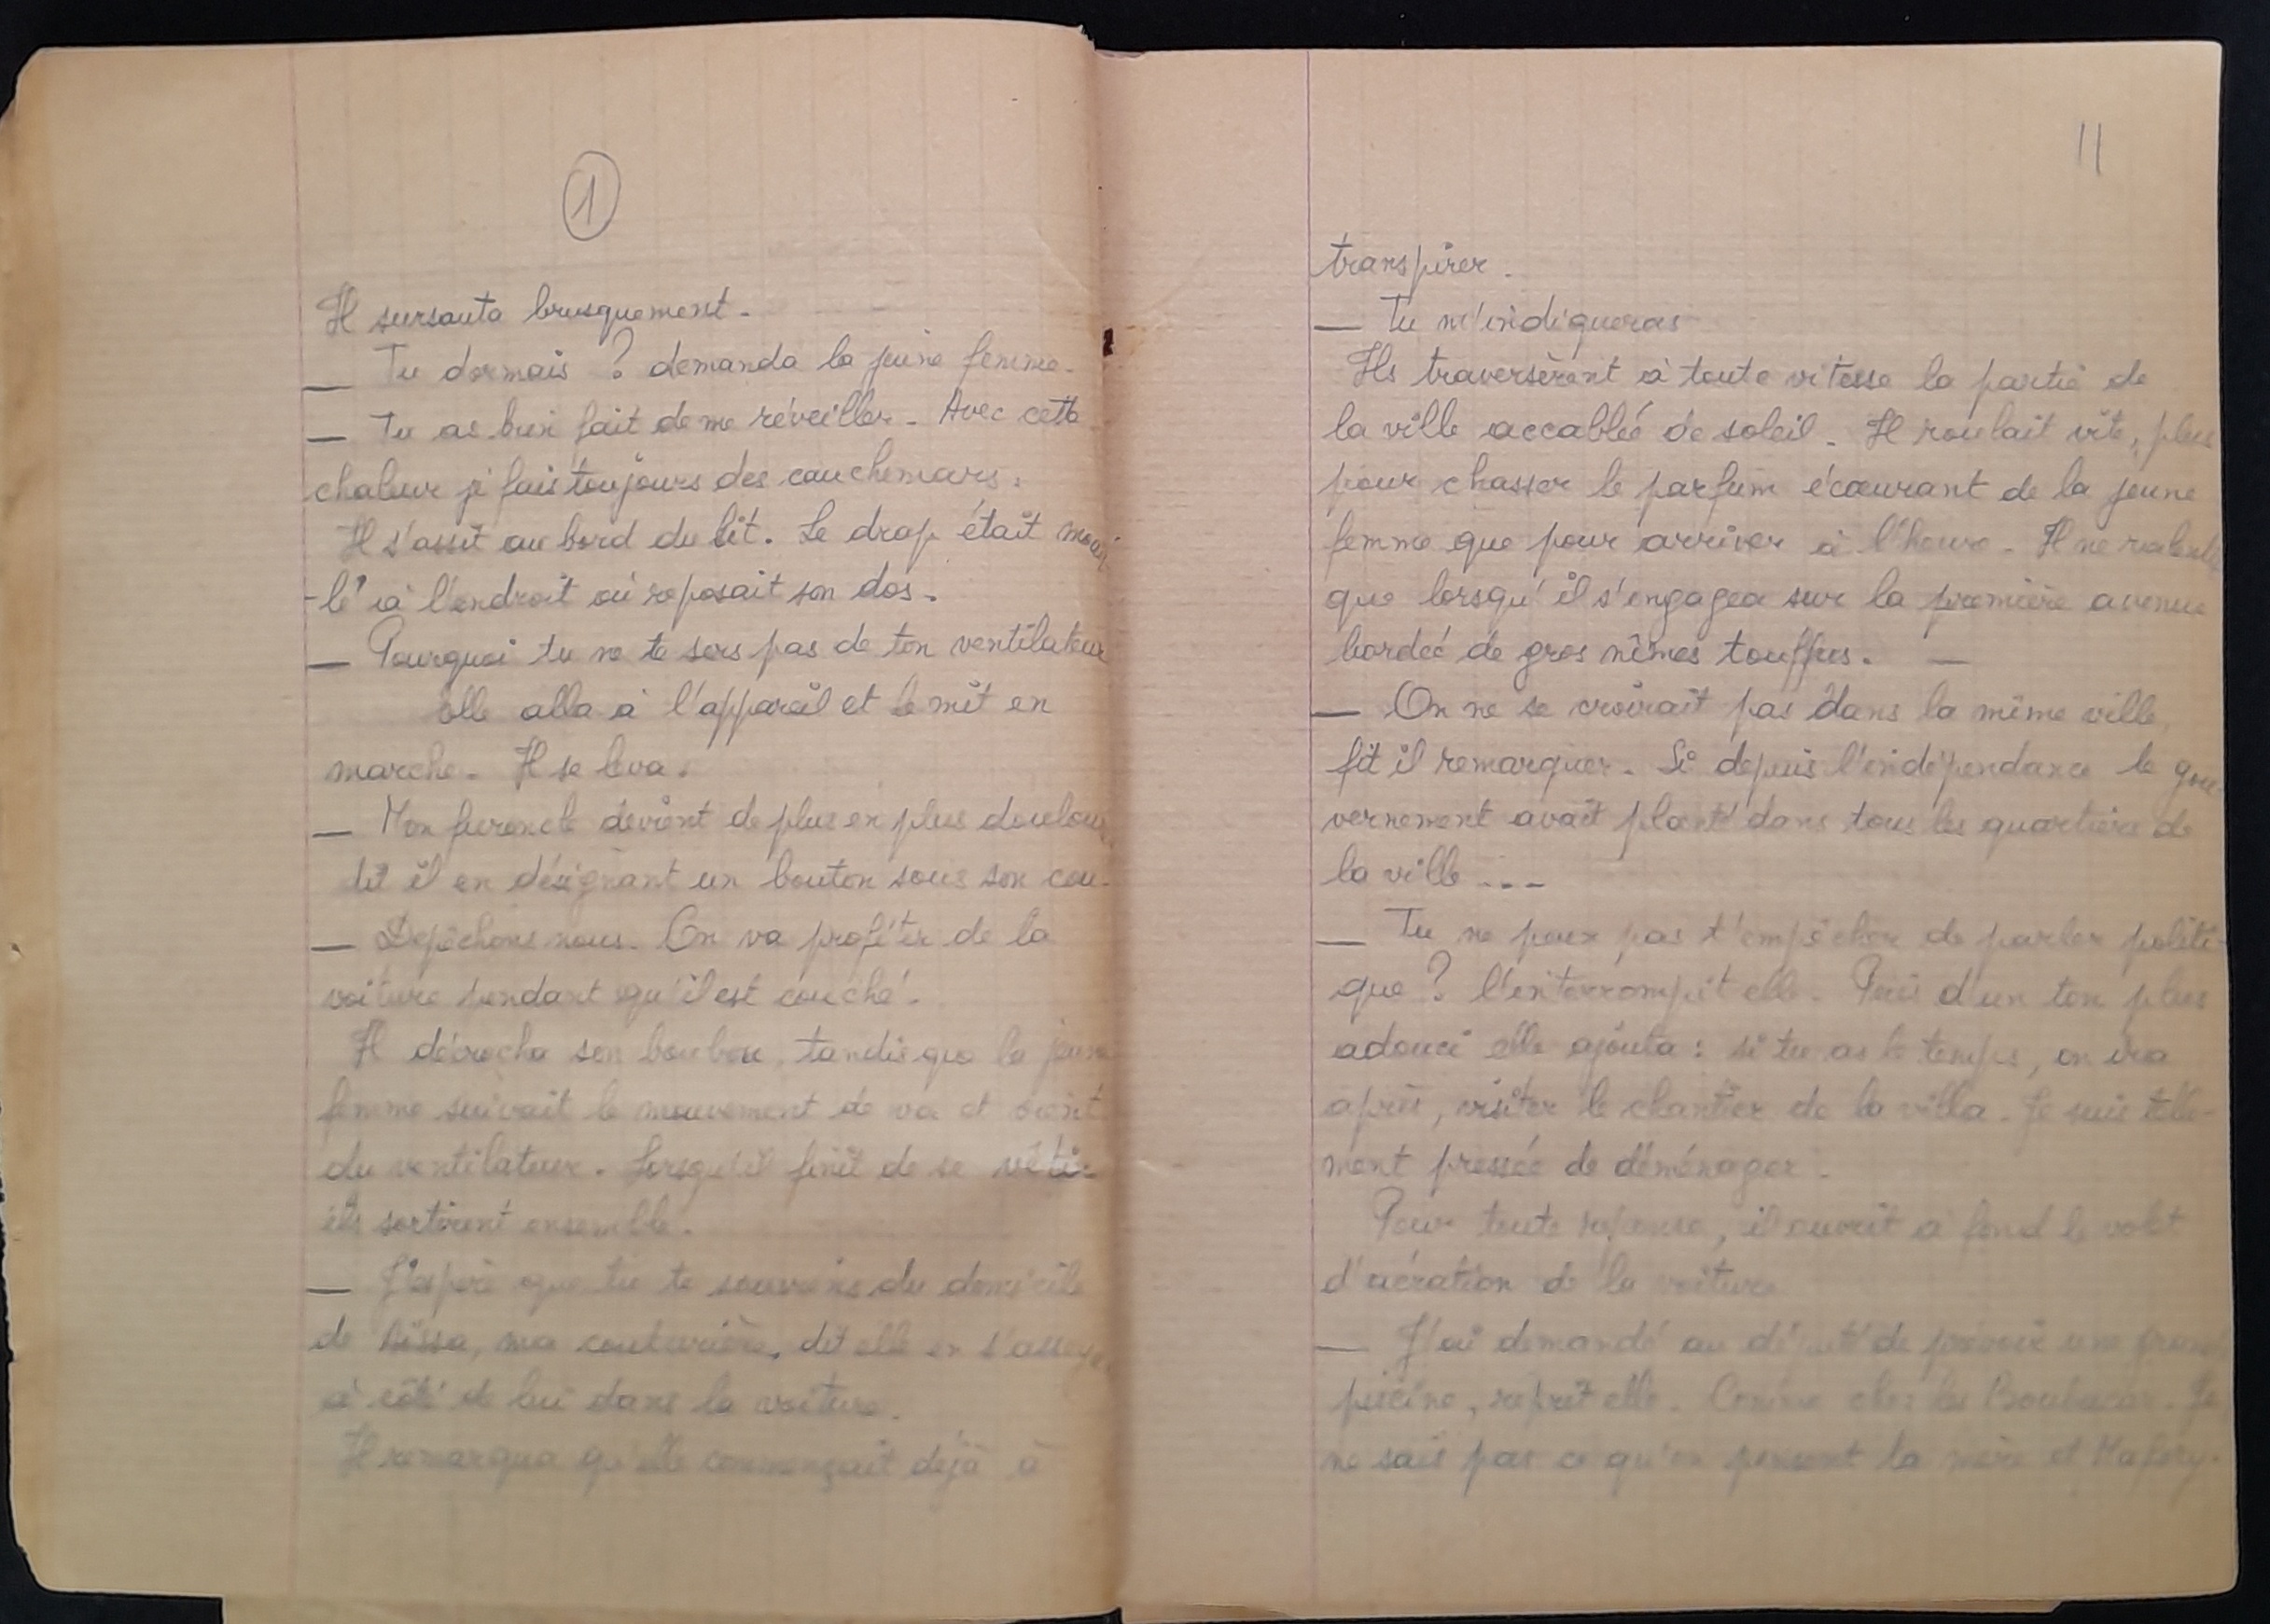 1
Il sursauta brusquement.
— Tu dormais ? demanda la jeune femme.
— Tu as bien fait de me réveiller. Avec cette
chaleur je fais toujours des cauchemars.
Il s'assit au bord du lit. Le drap était mouil
-lé à l'endroit où reposait son dos.
— Pourquoi tu ne te sers pas de ton ventilateur
Elle alla à l'appareil et le mit en
marche. Il se leva.
— Mon furoncle devient de plus en plus doulou
dit il en désignant un bouton sous son cou.
— Depêchons nous. On va profiter de la
voiture pendant qu'il est couché.
Il décrocha son boubou, tandis que la jeune
femme suivait le mouvement de va et vient
du ventilateur. Lorsqu'il finit de se vêtir
ils sortirent ensemble.
— J'espère que tu te souviens du domicile
de Aïssa, ma couturière, dit elle en s'asseya
à côté de lui dans la voiture.
Il remarqua qu'elle commençait déjà à
11
transpirer.
— Tu m'indiqueras
Ils traversèrent à toute vitesse la partie de
la ville accablée de soleil. Il roulait vite, plus
pour chasser le parfum écœurant de la jeune
femme que pour arriver à l'heure. Il ne ralentit
que lorsqu'il s'engagea sur la première avenue
bordée de gros nîmes touffus. —
— On ne se croirait pas dans la même ville,
fit il remarquer. Si depuis l'indépendance le gou
vernement avait planté dans tous les quartiers de
la ville ...
— Tu ne peux pas t'empêcher de parler politi-
que ? l'interrompit elle. Puis d'un ton plus
adouci elle ajouta : si tu as le temps, on ira
après, visiter le chantier de la villa. Je suis telle-
ment pressée de déménager.
Pour toute réponse, il ouvrit à fond le volet
d'aération de la voiture
— J'ai demandé au député de prévoir une grande
piscine, reprit elle. Comme chez les Boubacar. Je
ne sais pas ce qu'en pensent ta mère et